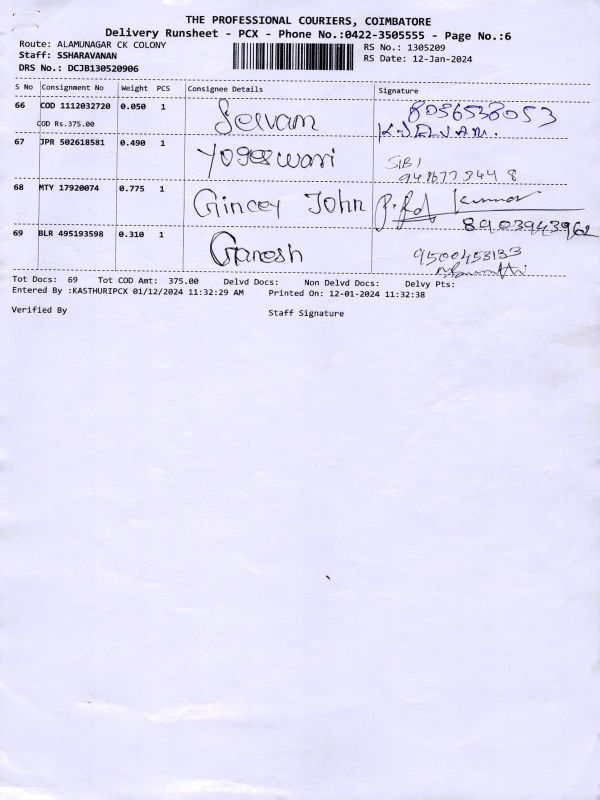 THE PROFESSIONAL COURIERS, COIMBATORE
Delivery Runsheet - PCX - Phone No.:0422-3505555 - Page No.:6
Route: ALAMUNAGAR CK COLONY
RS No.: 1305209
Staff: SSHARAVANAN
RS Date: 12-Jan-2024
DRS No.: DCJB130520906
S No Consignment No Weight PCS Consignee Details Signature
66 COD 1112032720 0.050 1 Selvam 8056538053
COD Rs.375.00 K.SELVAM.
67 JPR 502618581 0.490 1 Yogeswari SIBI
68 MTY 17920074 0.775 1 Gincey John Kumar
8903943962
69 BLR 495193598 0.310 1 Ganesh 9500453133
Tot Docs: 69 Tot COD Amt: 375.00 Delvd Docs: Non Delvd Docs: Delvy Pts:
Entered By :KASTHURIPCX 01/12/2024 11:32:29 AM Printed On: 12-01-2024 11:32:38
Verified By
Staff Signature